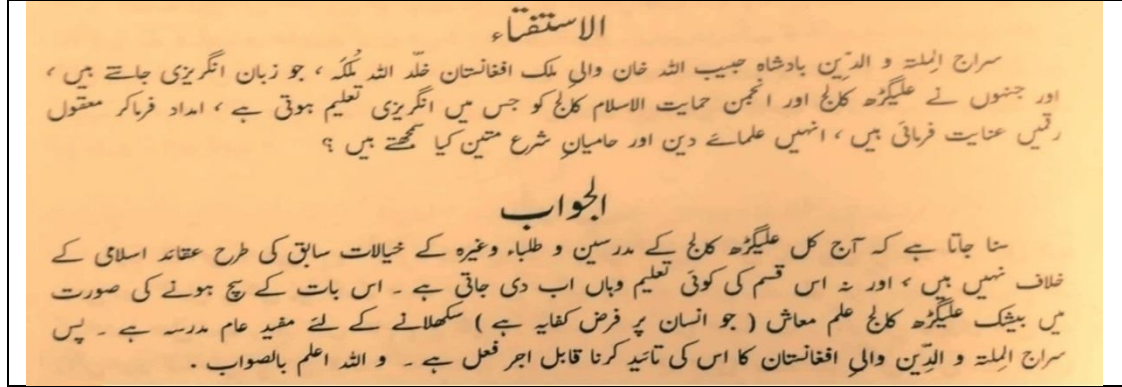 الاستفتاء
سراج الملۃ و الدّین بادشاہ حبیب اللہ خان والیِ ملک افغانستان خلّد اللہ مُلکَہ ، جو زبان انگریزی جانتے ہیں ،
اور جنہوں نے علیگڑھ کالج اور انجمن حمایت الاسلام کالج کو جس میں انگریزی تعلیم ہوتی ہے ، امداد فرماکر معقول
رقمیں عنایت فرمائی ہیں ، انہیں علمائے دین اور حامیانِ شرع متین کیا سمجھتے ہیں ؟
الجواب
سنا جاتا ہے کہ آج کل علیگڑھ کالج کے مدرسین و طلباء وغیرہ کے خیالات سابق کی طرح عقائد اسلامی کے
خلاف نہیں ہیں ، اور نہ اس قسم کی کوئی تعلیم وہاں اب دی جاتی ہے ۔ اس بات کے سچ ہونے کی صورت
میں بیشک علیگڑھ کالج علم معاش ( جو انسان پر فرض کفایہ ہے ) سکھلانے کے لئے مفید عام مدرسہ ہے ۔ پس
سراج الملۃ و الدّین والیِ افغانستان کا اس کی تائید کرنا قابل اجر فعل ہے ۔ و اللہ اعلم بالصواب .